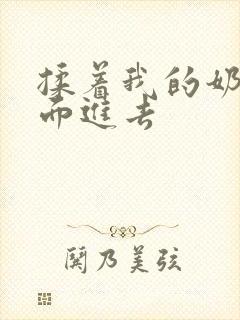 揉着我的奶
而进去
闕乃美弦